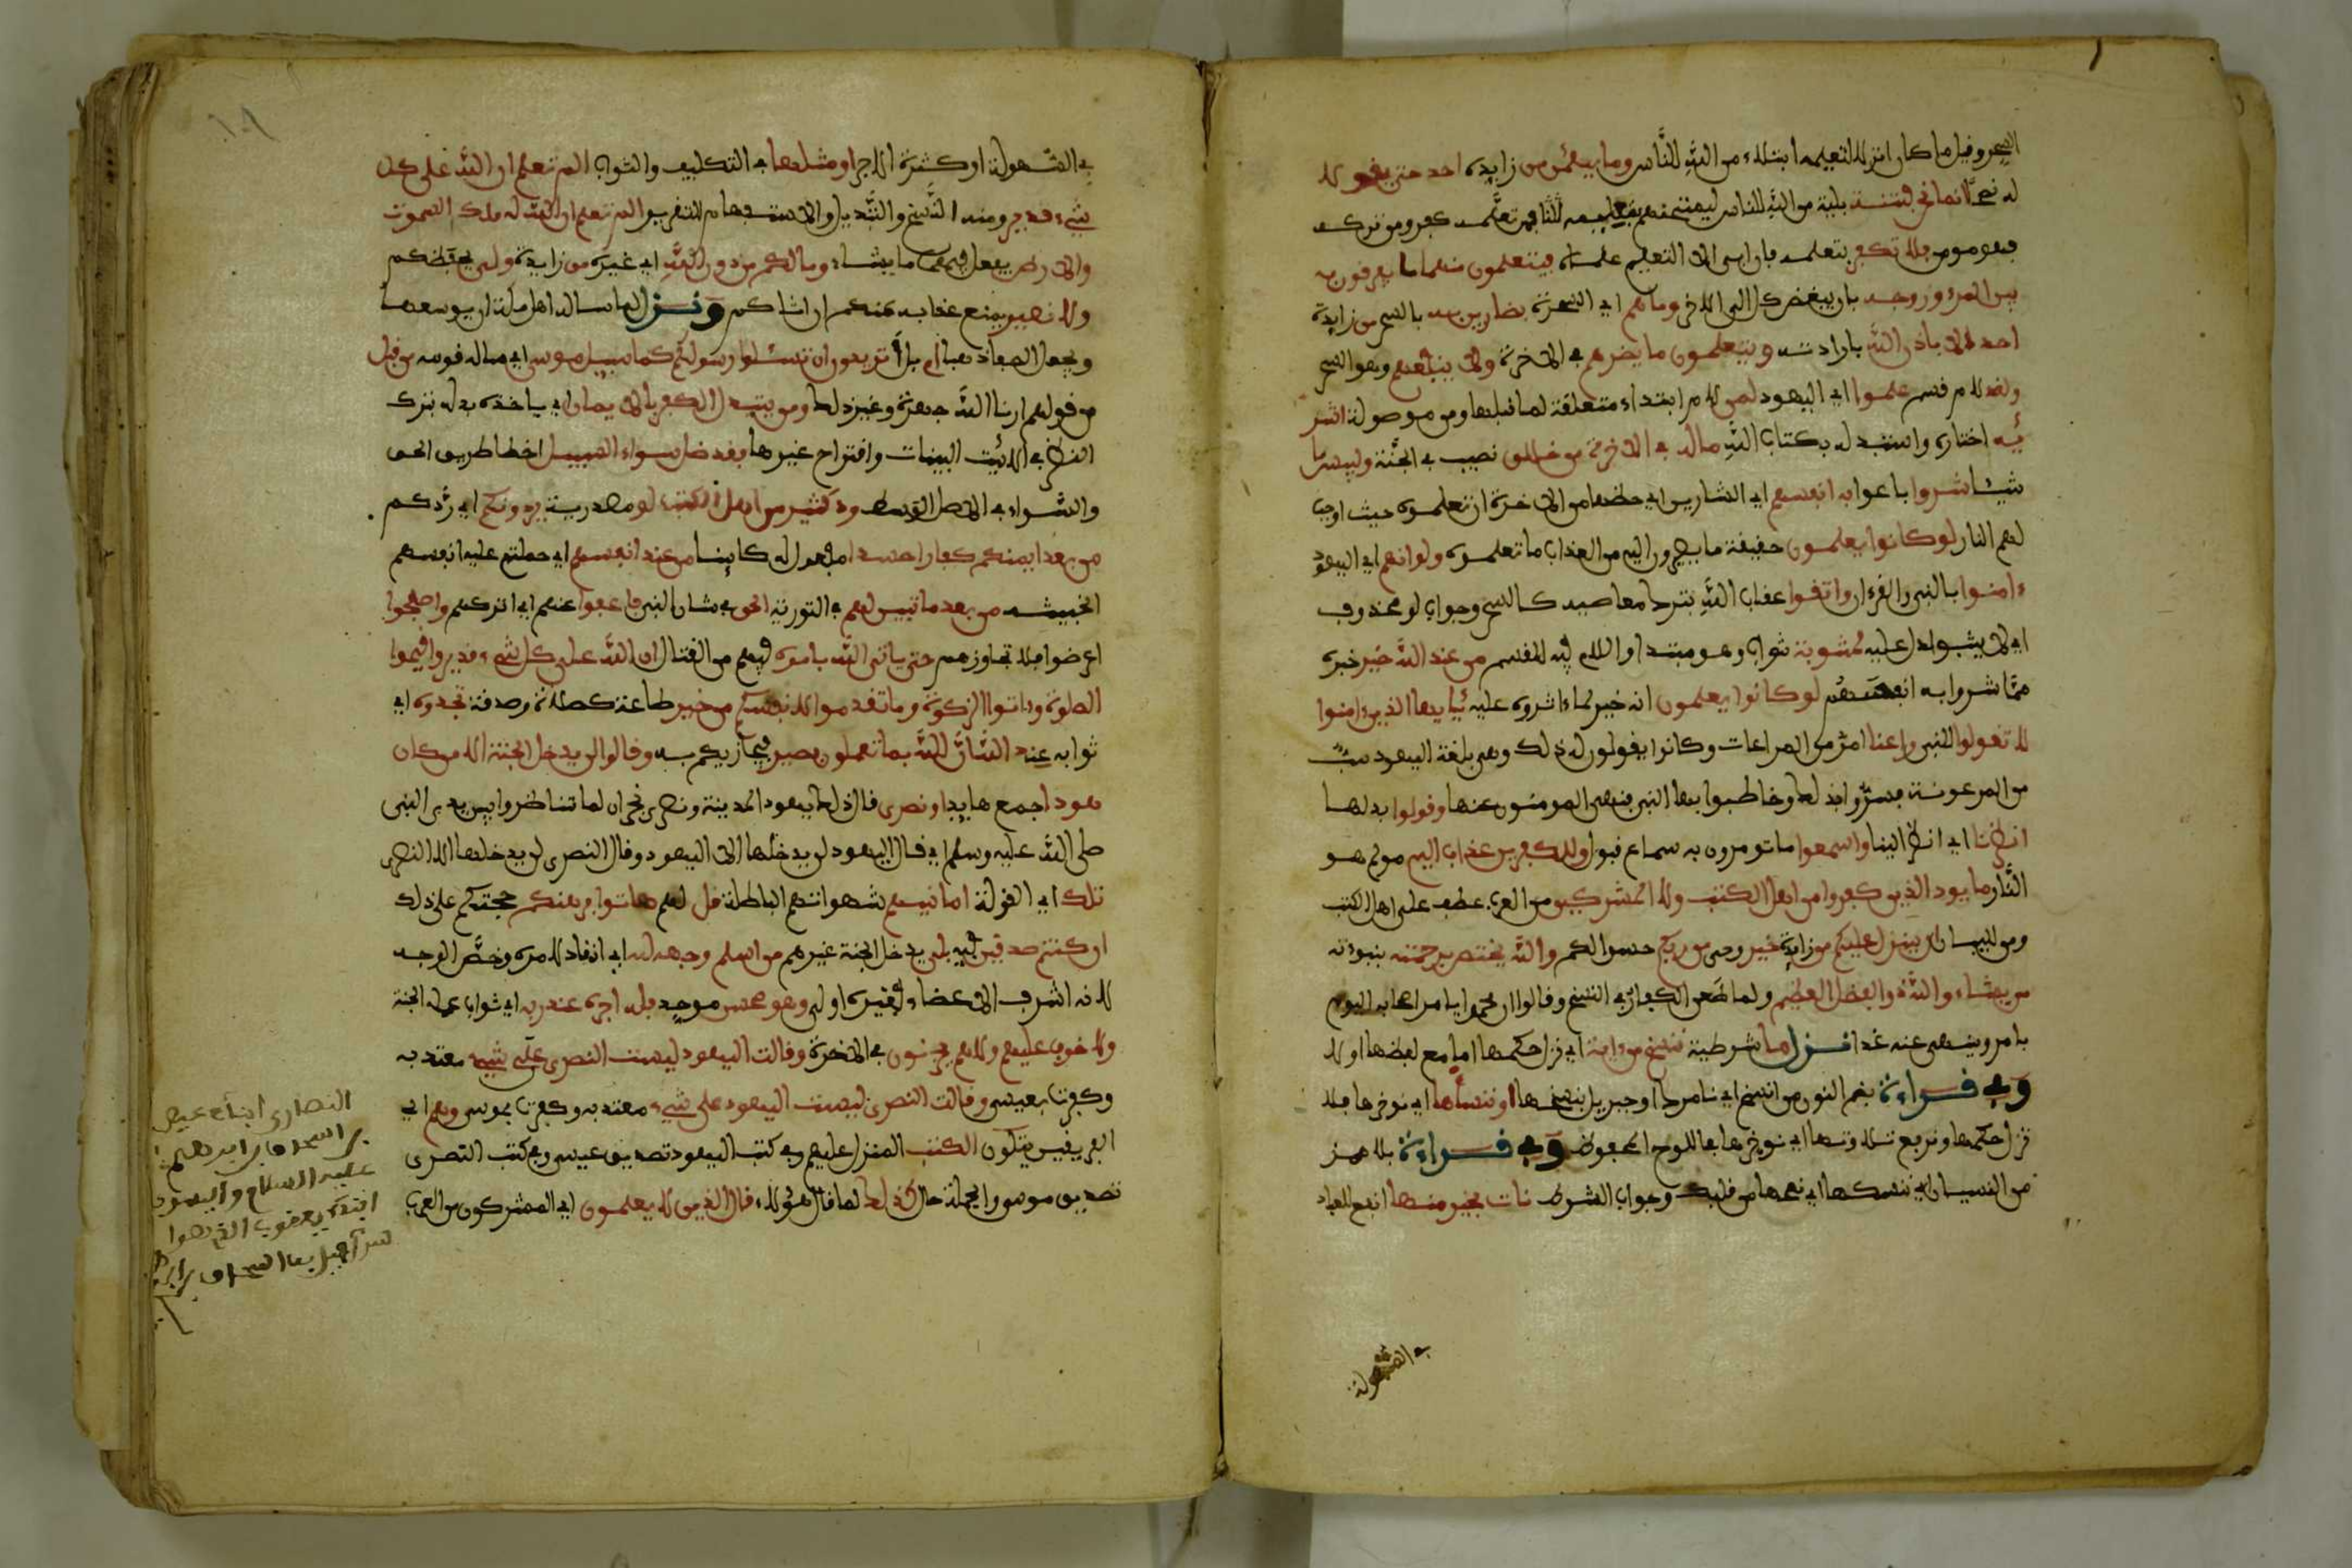 السحر وقيل ملكان انزلا لتعليمه ابتلاء من الله للناس وما يعلمن من زايدة احد حتى يقولا
له نصحا انما نحن فتنة بلية من الله للناس ليمتحنهم بتعليمه للنا فمن تعلمه كفر ومن تركه
فهو مومن فلا تكفر بتعلمه فان ابى الا التعليم علماه فيتعلمون منهما ما يفرقون به
بين المرء وزوجه بان يبغض كلا الى الاخر وما هم اي السحرة بضارين به بالسحر من زايدة
احد الا باذن الله بارادته ويتعلمون ما يضرهم في الاخرة ولا ينفعهم وهو السحر
ولقد لام قسم علموا اي اليهود لمن لام ابتداء متعلقة لما قبلها ومن موصولة اشتر
ئيه اختاره واستبدله بكتاب الله ماله في الاخرة من خلاق نصيب في الجنة ولبيس ما
شيئا شروا باعوا به انفسهم اي الشارين اي حظها من الاخرة ان تعلموه حيث اوجب
لهم النار لو كانوا يعلمون حقيقة ما يصيرون اليه من العذاب ما تعلموه ولو انهم اي اليهود
ءامنوا بالنبي والقرءان واتقوا عقاب الله بترك معاصيه كالسحر وجواب لو محذوف
اي لاثيبوا دل عليه لمثوبة ثواب وهو مبتدا واللام فيه للقسم من عند الله خير خبره
مما شروا به انفسهم لو كانوا يعلمون انه خير لما ءاثروه عليه يايها الذين ءامنوا
لا تقولوا للنبي راعنا امر من المراعات وكانوا يقولون له ذلك وهي بلغة اليهود سب
من الرعونة فسروا بذلك وخاطبوا بها النبي فنهي المومنون عنها وقولوا بدلها
انظرنا اي انظر الينا واسمعوا ما تومرون به سماع قبول وللكفرين عذاب اليم مولم هو
النار ما يود الذين كفروا من اهل الكتب ولا المشركين من العرب عطف على اهل الكتب
ومن للبيان ان ينزل عليكم من زايدة خير وحي من ربكم حسدا لكم والله يختص برحمته بنبوته
من يشاء والله ذو الفضل العظيم ولما طعن الكفار في النسخ وقالوا ان محمدا يامر اصحابه اليوم
بامر وينهى عنه غدا نزل ما شرطية ننسخ من ءاية اي نزل حكمها اما مع لفظها او لا
وفي قراءة بضم النون من انسخ اي نامرك او جبريل بنسخها او ننساها اي نوخرها فلا
نزل حكمها ونرفع تلاوتها اي نوخرها في اللوح المحفوظ وفي قراءة بلا همز
من النسيان اي ننسكها اي نمحها من قلبك وجواب الشرط نات بخير منها انفع للعباد
في السهولة
في السهولة او كثرة الاجر او مثلها في التكليف والثواب الم تعلم ان الله على كل
شيء قدير ومنه النسخ والتبديل والاستفهام للتقرير الم تعلم ان الله له ملك السموت
والارض يفعل فيهما ما يشاء وما لكم من دون الله اي غيره من زايدة ولي يحفظكم
ولا نصير يمنع عذابه عنكم ان اتاكم ونزل لما ساله اهل مكة ان يوسعها
ويجعل الصفا ذهبا ام بل أتريدون ان تسئلوا رسولكم كما سيل موسى اي ساله قومه من قبل
من قولهم ارنا الله جهرة وغير ذلك ومن يتبدل الكفر بالايمان اي ياخذه بدله بترك
النظر في الايت البينات واقتراح غيرها فقد ضل سواء السبيل اخطا طريق الحق
والسواء في الاصل الوسط ود كثير من اهل الكتب لو مصدرية يردونكم اي ردكم
من بعد ايمنكم كفارا حسدا مفعول له كاينا من عند انفسهم اي حملتهم عليه انفسهم
الخبيثة من بعد ما تبين لهم في التورية الحق في شان النبي فاعفوا عنهم اي اتركهم واصفحوا
اعرضوا فلا تجازوهم حتى ياتي الله بامره فيهم من القتال ان الله على كل شيء قدير واقيموا
الصلوة وءاتوا الزكوة وما تقدموا لانفسكم من خير طاعة كصلاة وصدقة تجدوه اي
ثوابه عند الله ان الله بما تعملون بصير فيجازيكم به وقالوا لن يدخل الجنة الا من كان
هودا جمع هايد او نصرى قال ذلك يهود المدينة ونصرى نجران لما تناظروا بين يدي النبي
صلى الله عليه وسلم اي قال اليهود لن يدخلها الا اليهود وقال النصرى لن يدخلها الا النصرى
تلك اي القولة امانيهم شهواتهم الباطلة قل لهم هاتوا برهنكم حجتكم على ذلك
ان كنتم صدقين فيه بلى يدخل الجنة غيرهم من اسلم وجهه لله اي انقاد لامره وخص الوجه
لانه اشرف الاعضاء فغيره اولى وهو محسن موحد فله اجره عند ربه اي ثواب عمله الجنة
ولا خوف عليهم ولا هم يحزنون في الاخرة وقالت اليهود ليست النصرى على شيء معتد به
وكفرت بعيسى وقالت النصرى ليست اليهود على شيء معتد به وكفرت بموسى وهم اي
الفريقين يتلون الكتب المنزل عليهم وفي كتب اليهود تصديق عيسى وفي كتب النصرى
تصديق موسى والجملة حال كذلك كما قال هؤلاء قال الذين لا يعلمون اي المشركون من العرب
النصارى ابناء عيص
بن اسحاق بن ابراهيم
عليه السلام واليهود
ابناء يعقوب الذي هو ا